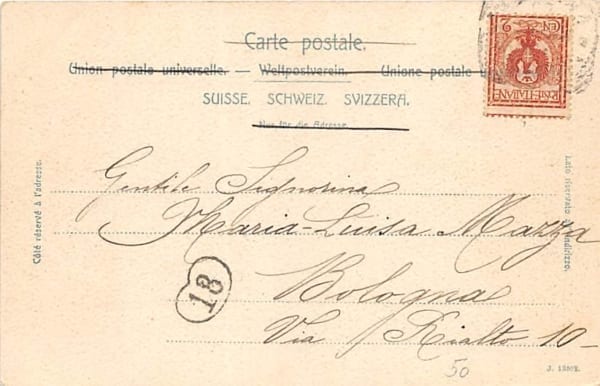 Carte postale.
Union postale universelle. — Weltpostverein. — Unione postale u
SUISSE. SCHWEIZ. SVIZZERA.
Nur für die Adresse.
CEN 2
POSTE ITALIANE
Côté réservé à l'adresse.
Lato riservato all'indirizzo.
Gentile Signorina
Maria-Luisa Mazza
Bologna
Via Rialto 10-
18
50